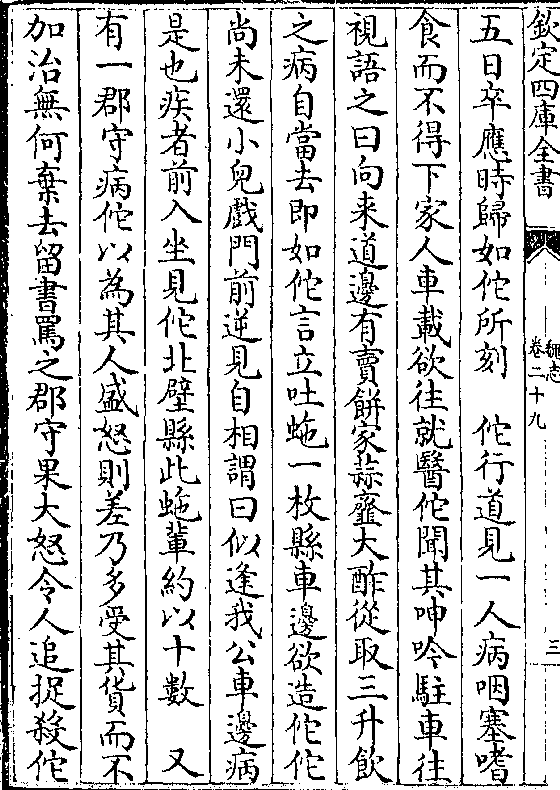 欽定四庫全書
魏志
卷二十九
三
五日卒應時歸如佗所刻　佗行道見一人病咽塞嗜
食而不得下家人車載欲往就醫佗聞其呻吟駐車往
視語之曰向来道邊有賣餅家蒜虀大酢從取三升飲
之病自當去即如佗言立吐虵一枚縣車邊欲造佗佗
尚未還小兒戲門前逆見自相謂曰似逢我公車邊病
是也疾者前入坐見佗北壁縣此虵輩約以十數　又
有一郡守病佗以為其人盛怒則差乃多受其貨而不
加治無何棄去留書罵之郡守果大怒令人追捉殺佗